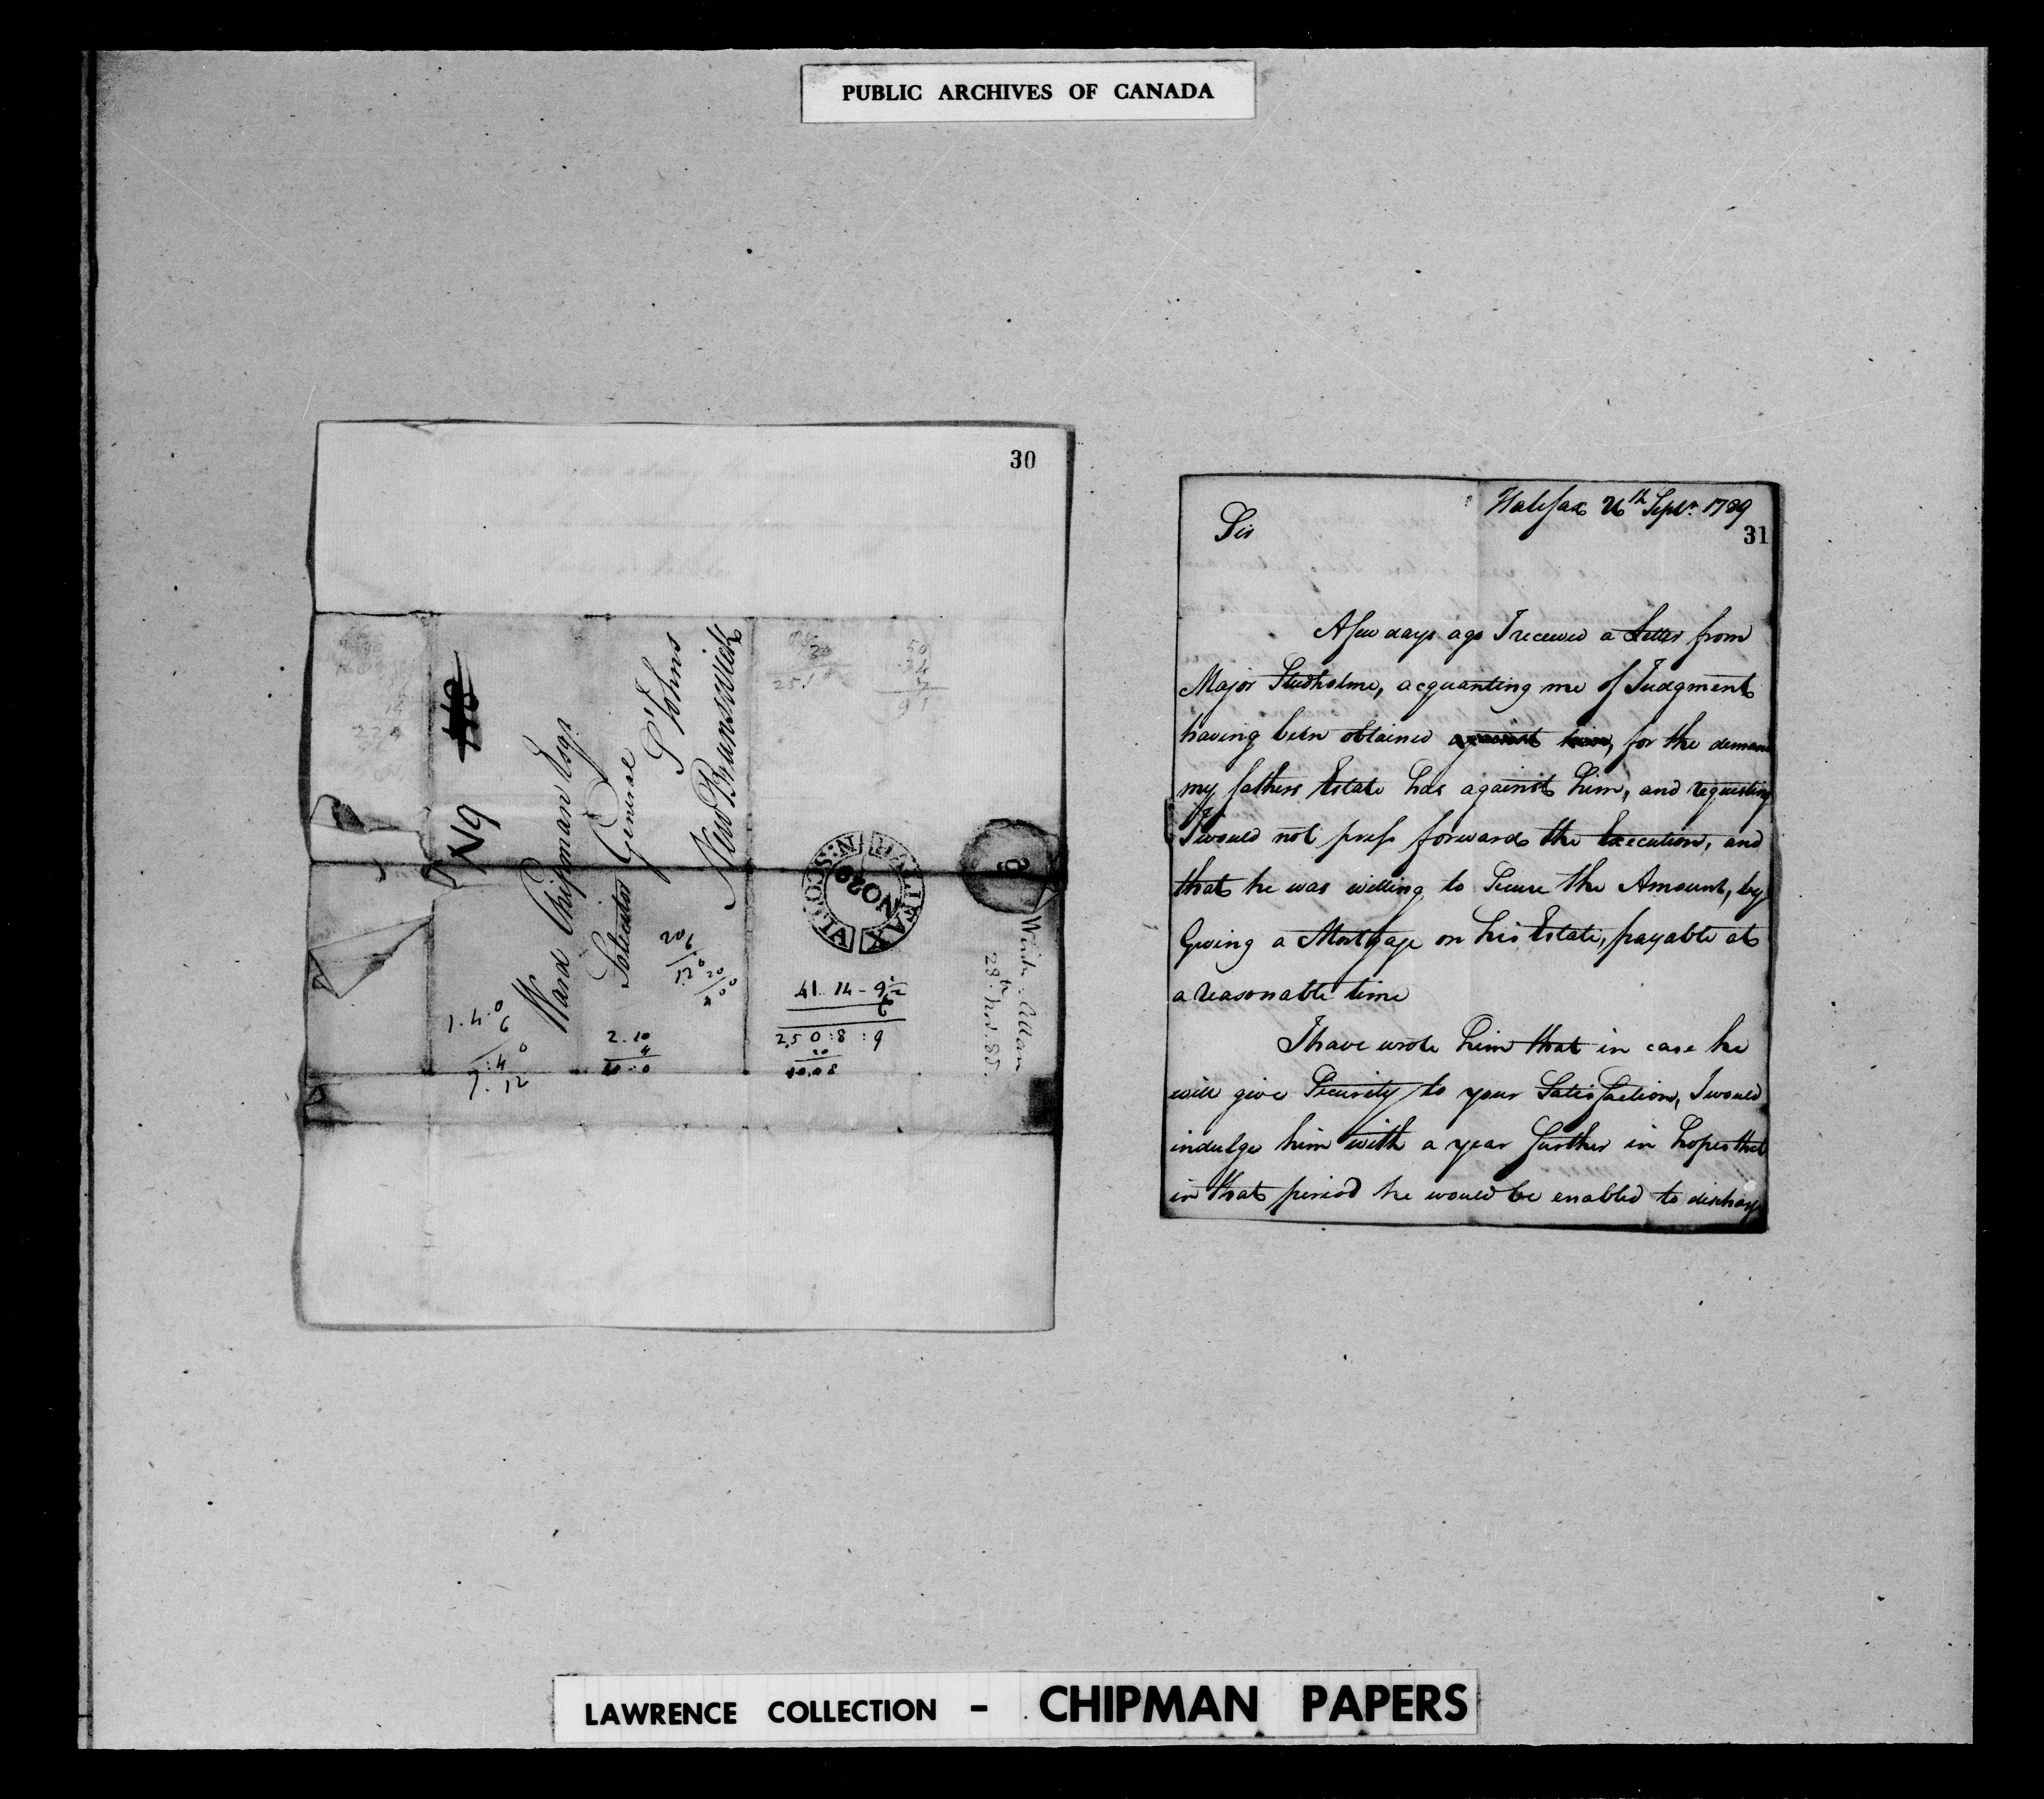 PUBLIC ARCHIVES OF CANADA
30
No
Ward Chipman Esqr.
Solicitor General
St Johns
New Brunswick
HALIFAX N:SCOTIA
NO 29
Winkw: Allan
28th Nov. 88.
1.4.0
6
7:4
7.12
2.10
4
10:0
20
6
120
20
41..14-9½
6
250:8:9
20
Halifax 26th Septr. 1789
31
Sir
A few days ago I received a Letter from
Major Studholme, acquanting me of Judgment
having been obtained against him, for the demand
my fathers Estate has against him, and requesting
I would not press forward the Execution, and
that he was willing to Secure the Amount, by
Giving a Mortgage on his Estate, payable at
a reasonable time
I have wrote him that in case he
will give Security to your Satisfaction, I would
indulge him with a year further in hopes that
in that period he would be enabled to discharge
LAWRENCE COLLECTION - CHIPMAN PAPERS